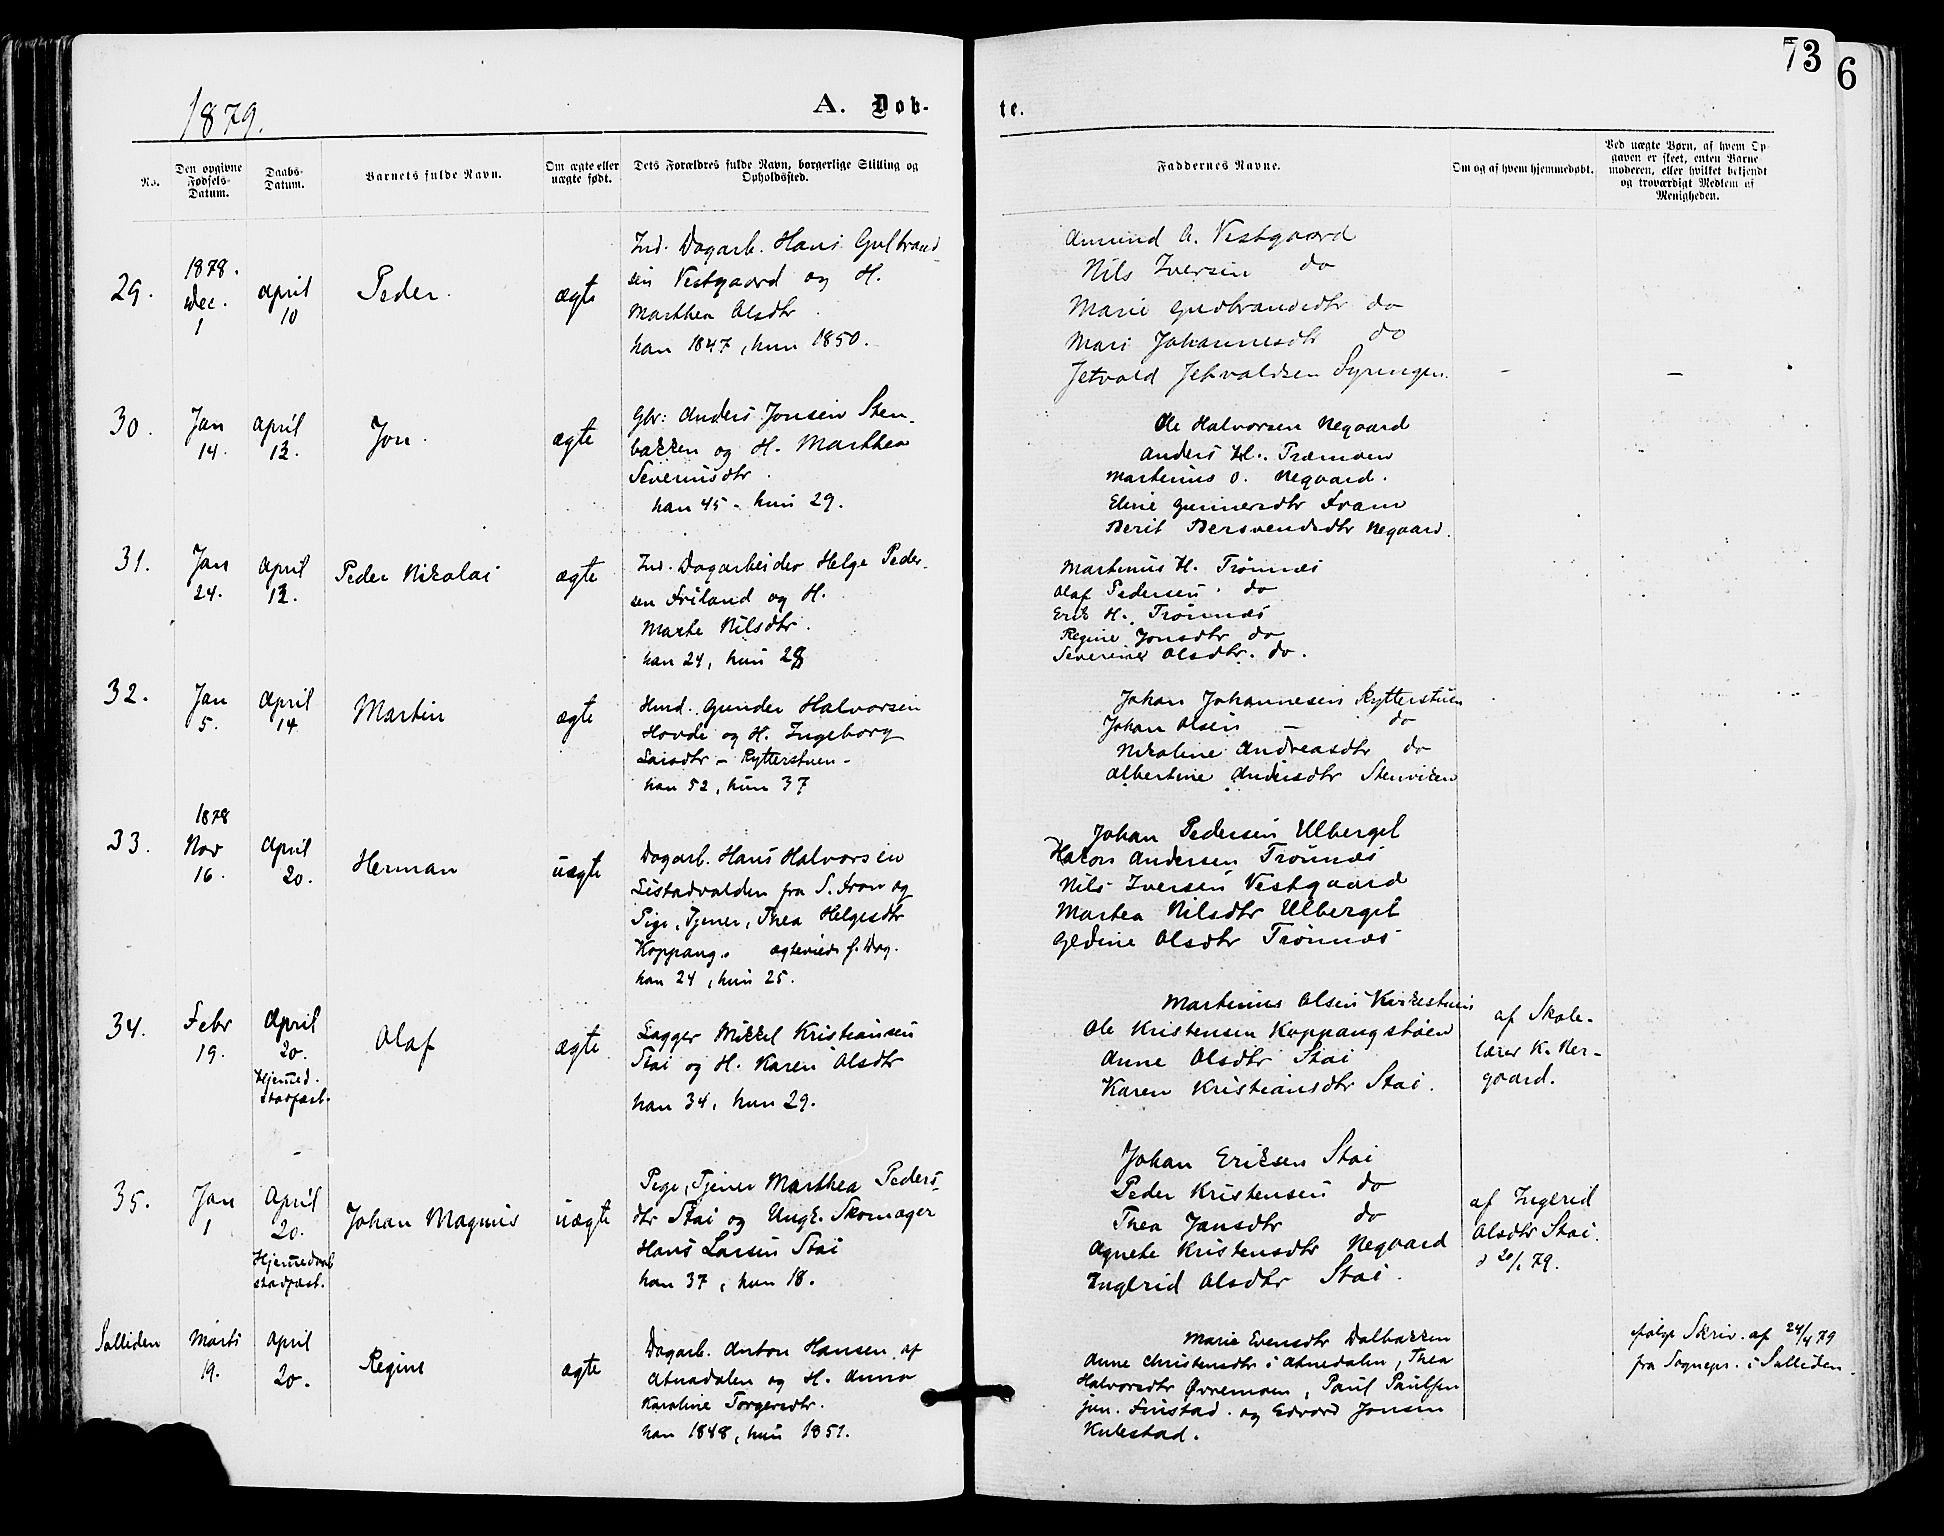 73
6
1879.
A. Døb-
te.
No.
Den opgivne Fødsels-Datum.
Daabs-Datum.
Barnets fulde Navn.
Om ægte eller uægte født.
Dets Forældres fulde Navn, borgerlige Stilling og Opholdssted.
Faddernes Navne.
Om og af hvem hjemmedøbt.
Ved uægte Børn, af hvem Opgaven er skeet, enten Barnemoderen, eller hvilket bekjendt og troværdigt Medlem af Menigheden.
29.
1878.
Dec.
1
April
10
Peder.
ægte
Ind. Dagarb. Hans Gulbrand-
sen Vestgaard og H.
Marthea Olsdtr.
han 1847, hun 1850.
Amund A. Vestgaard
Nils Iversen do
Marie Gudbrandsdtr do
Mari Johannesdtr do
30.
Jan
14.
April
13.
Jon.
ægte
Gbr: Anders Jonsen Sten-
bakken og H. Marthea
Severinsdtr.
han 45 - hun 29.
Ole Halvorsen Negaard
Martinus O. Negaard.
Eline Gunnersdtr Fram
Berit Bersvendsdtr Negaard.
31.
Jan
24.
April
13.
Peder Nikolai
ægte
Ind. Dagarbeider Helge Peder-
sen Friland og H.
Marte Nilsdtr.
han 24, hun 28
Martinus H. Trønnæs
Olaf Pedersen do
Erik H. Trønnæs
Regine Jonsdtr do
Severine Olsdtr. do.
32.
Jan
5.
April
14
Martin
ægte
Hmd. Gunder Halvorsen
Hovde og H. Ingeborg
Larsdtr - Rytterstuen -
han 52, hun 37
Johan Johannesen Rytterstuen
Johan Olsen - do
Nikoline Andreasdtr do
Albertine Andersdtr Stenviken
33.
1878
Nov
16.
April
20.
Herman
uægte
Dagarb. Hans Halvorsen
Listadvalden fra S. Fron og
Pige, Tjener, Thea Helgesdtr
Koppang. ægteviede s. Dag.
han 24, hun 25.
Johan Pedersen Ulberget
Hakon Andersen Trønnæs
Nils Iversen Vestgaard
Martea Nilsdtr Ulberget
Gedine Olsdtr Trønnæs
34.
Febr
19.
April
20.
Hjemmed.
stadfæst.
Olaf
ægte
Lægger Mikkel Kristiansen
Stai og H. Karen Olsdtr
han 34, hun 29.
Martinus Olsen Kirkestuen
Ole Kristensen Koppangstøen
Anne Olsdtr Stai
Karen Kristiansdtr Stai.
af Skole-
lærer K. Ner-
gaard.
35.
Jan
1
April
20.
Hjemmedaab
stadfæst.
Johan Magnus
uægte
Pige, Tjener Marthea Peders-
dtr Stai og Ungk. Skomager
Hans Larsen Stai
han 37, hun 18.
Johan Eriksen Stai
Peder Kristensen do
Thea Jansdtr do
Agnete Kristensdtr Negaard
Ingerid Olsdtr Stai.
af Ingerid
Olsdtr Stai.
d 20/1 79.
Solliden
Marts
19.
April
20.
Regine
ægte
Dagarb. Anton Hansen af
Atnadalen og H. Anna
Karoline Torgersdtr.
han 1848, hun 1851.
Marie Evensdtr Dalbakken
Anne Christensdtr i Atnedalen, Thea
Halvorsdtr Øvremoen, Paul Paulsen
jun. Finstad. og Edvard Jonsen
Kulestad.
ifølge Skriv. af 24/4 79
fra Sognepr. i Solliden